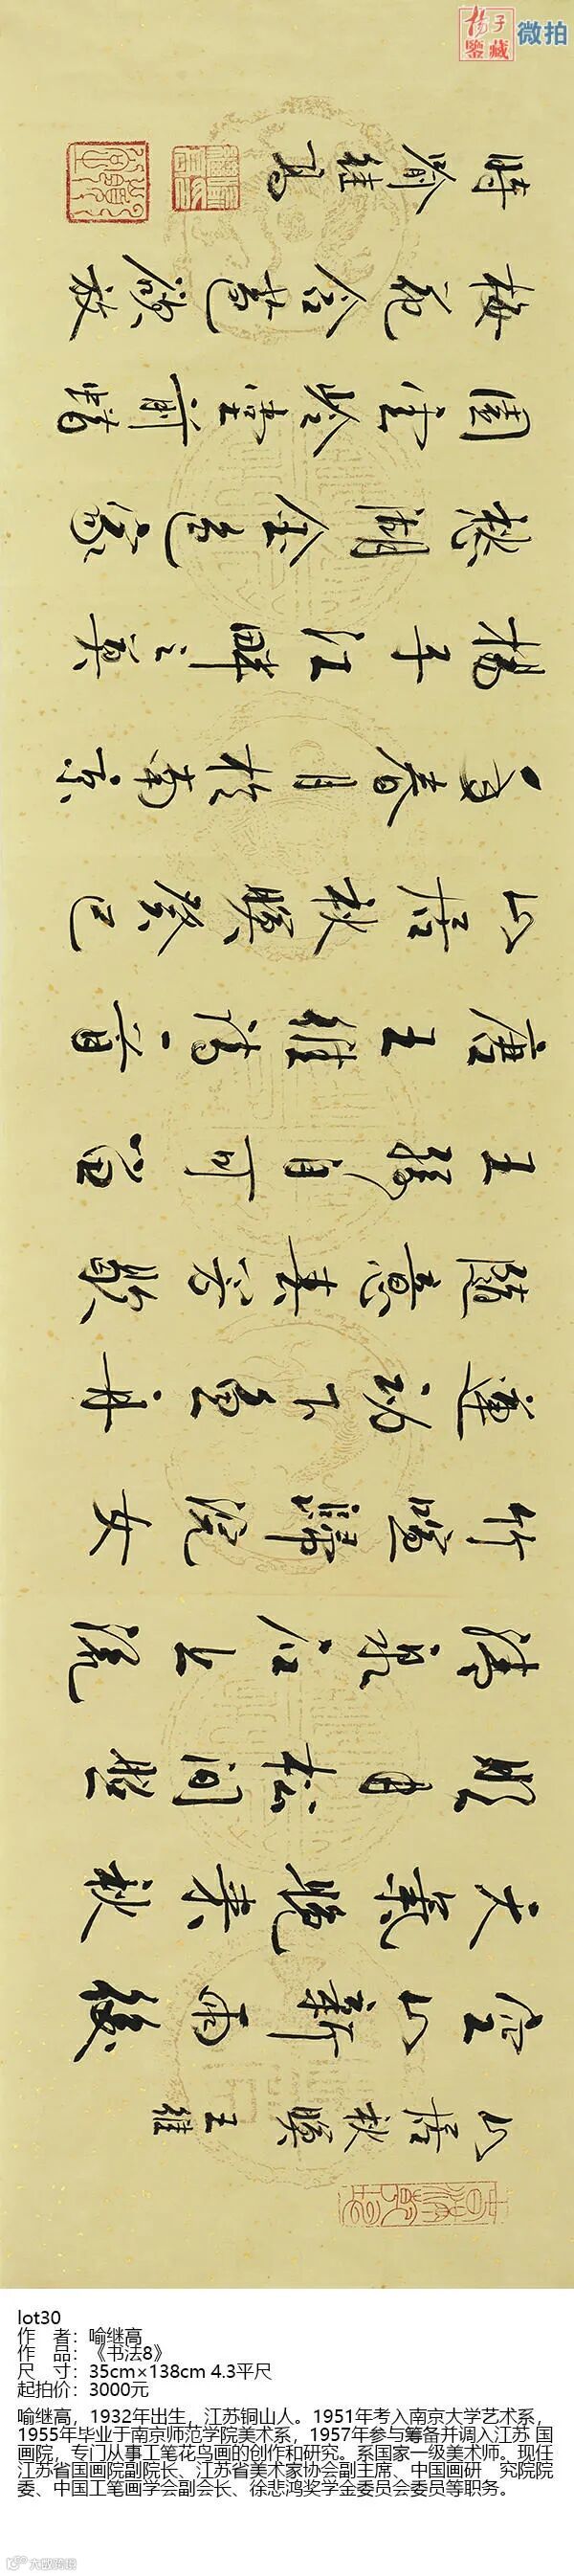 扬子
鉴藏
微拍
山居秋暝 王維
空山新雨後
天氣晚來秋
明月松间照
清泉石上流
竹喧歸浣女
蓮動下漁舟
隨意春芳歇
王孫自可留
唐王維诗一首
山居秋暝癸巳
年春月於南京
揚子江畔之莫
愁湖金色家
園雲岭堂前蜡
梅花含苞欲放
時喻继高
lot30
作 者：喻继高
作 品：《书法8》
尺 寸：35cm×138cm 4.3平尺
起拍价：3000元
喻继高，1932年出生，江苏铜山人。1951年考入南京大学艺术系，
1955年毕业于南京师范学院美术系，1957年参与筹备并调入江苏 国
画院，专门从事工笔花鸟画的创作和研究。系国家一级美术师。现任
江苏省国画院副院长、江苏省美术家协会副主席、中国画研 究院院
委、中国工笔画学会副会长、徐悲鸿奖学金委员会委员等职务。